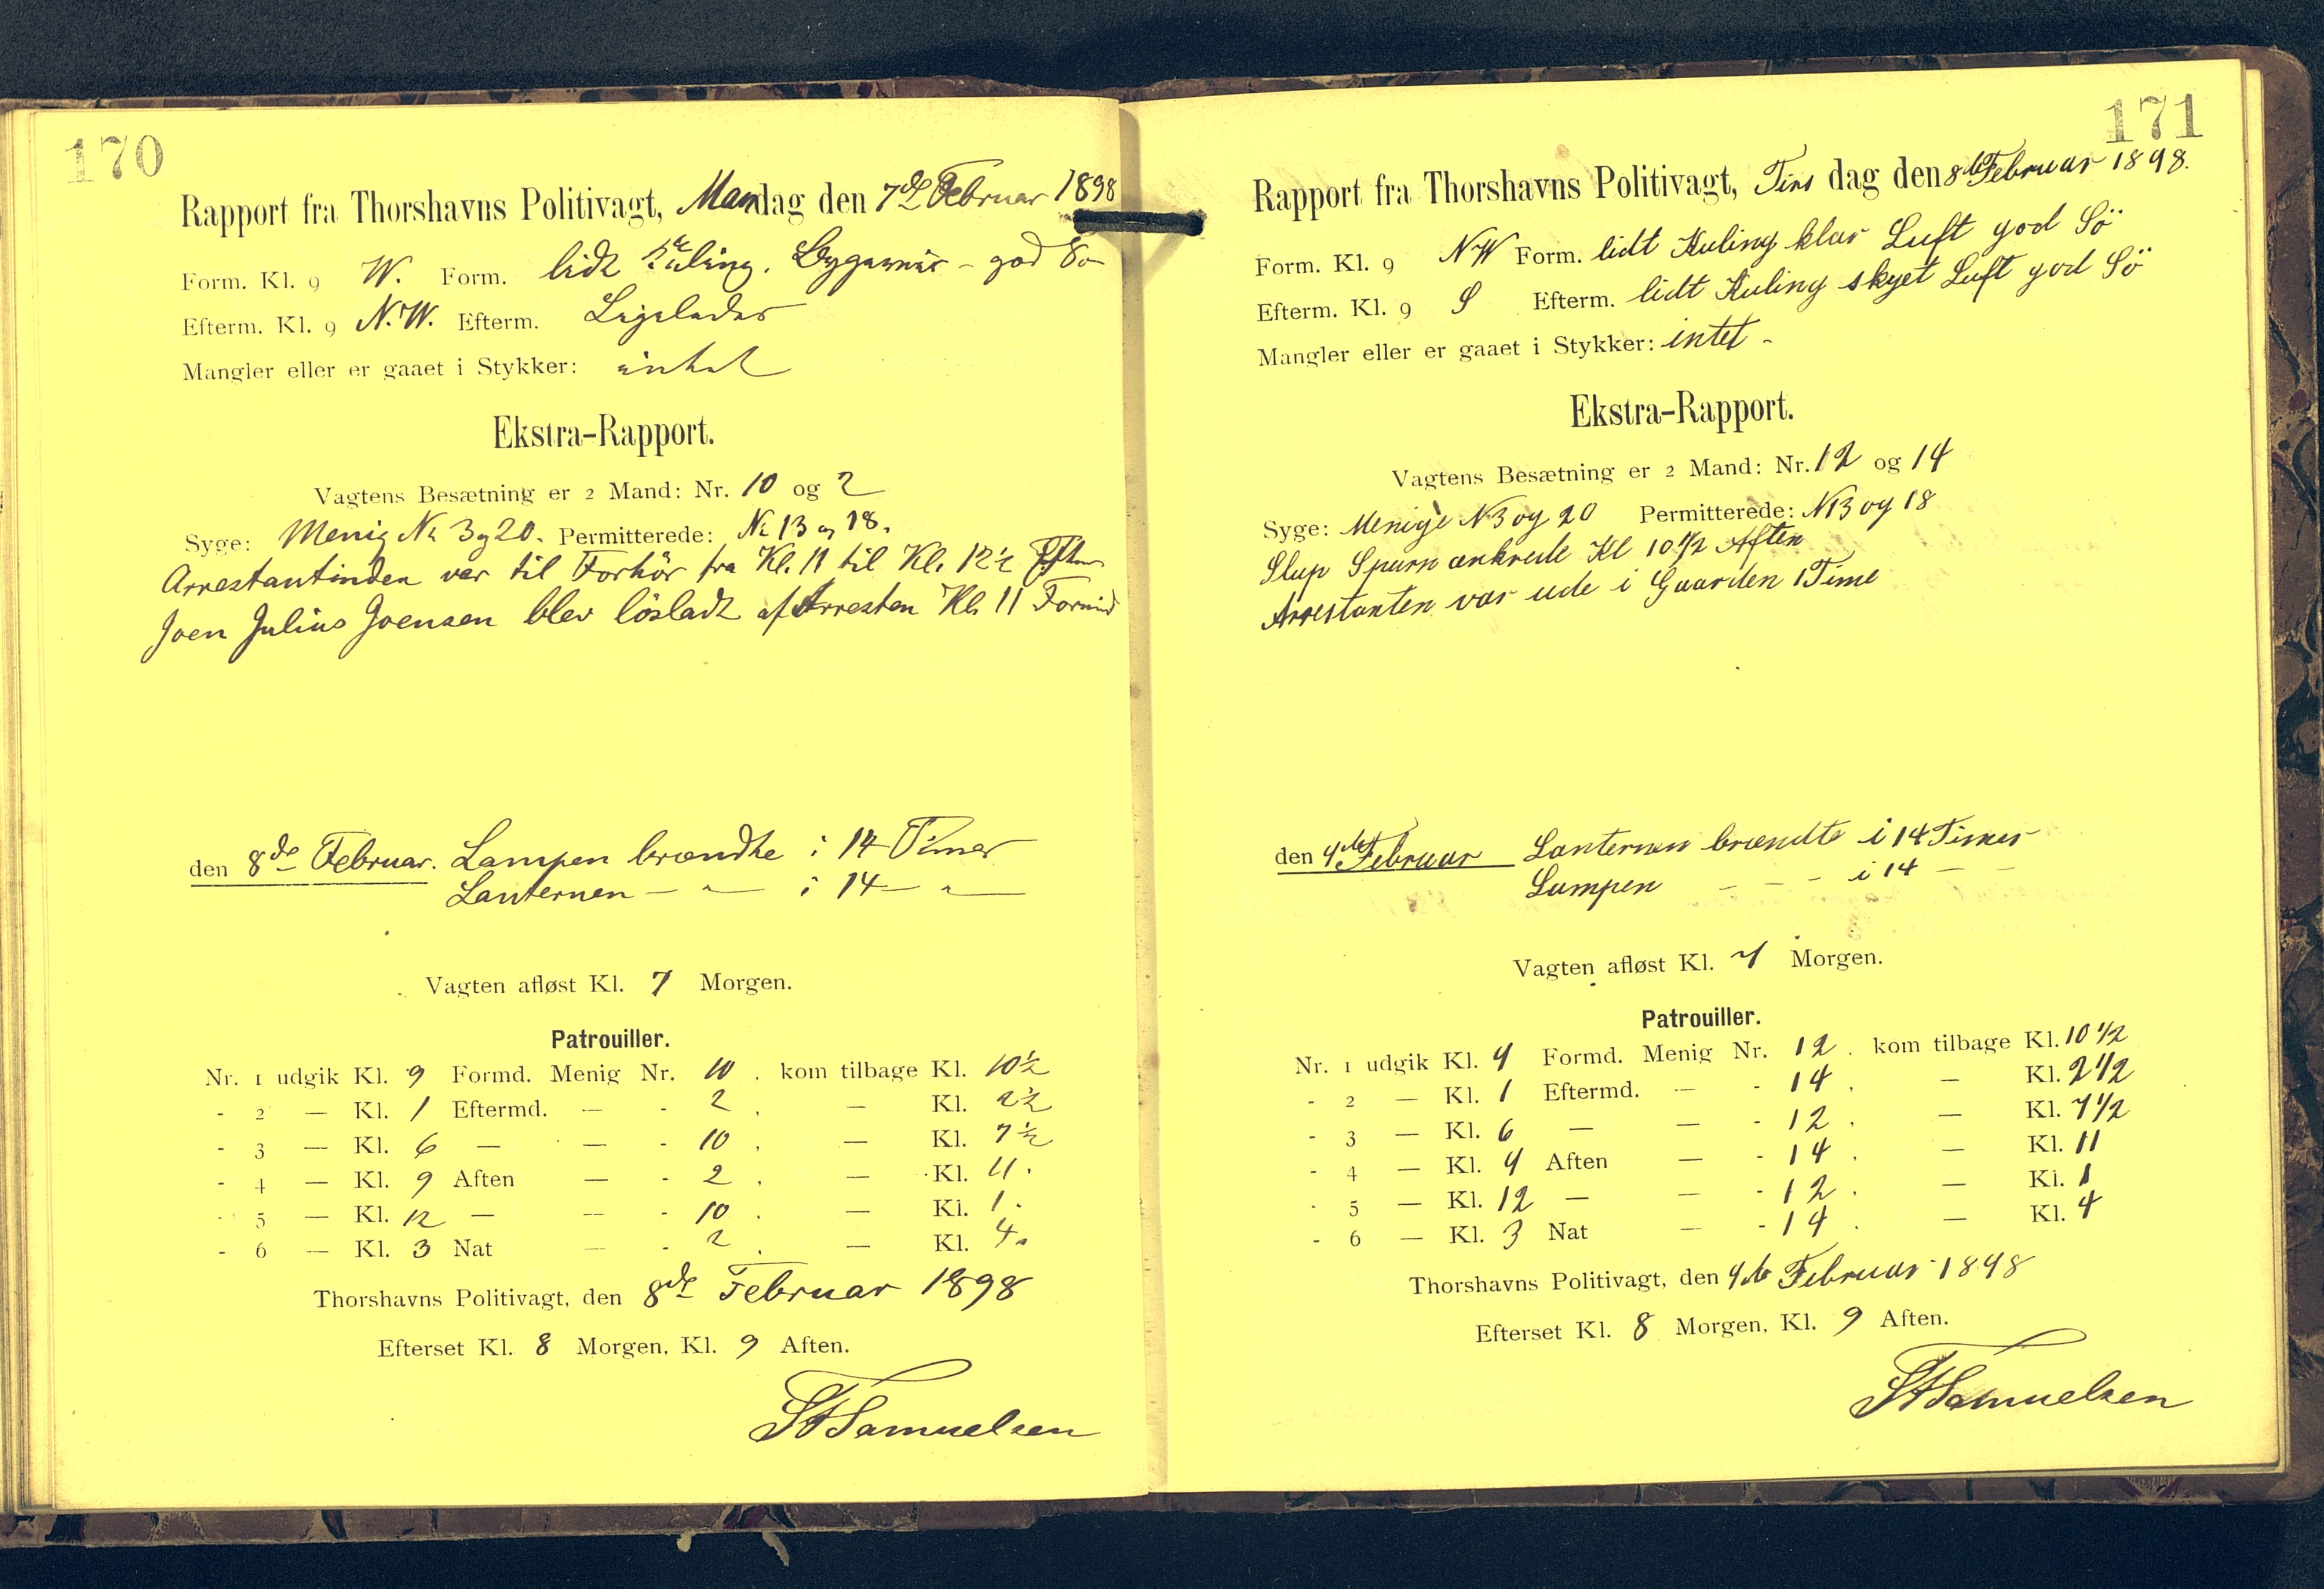 170
Rapport fra Thorshavns Politivagt, Mandag den 7de Februar 1898
Form. Kl. 9 W. Form. lidt Kuling. Bygeveir - god So
Efterm. Kl. 9 N.W. Efterm. Ligeledes
Mangler eller er gaaet i Stykker: intet
Ekstra-Rapport.
Vagtens Besætning er 2 Mand: Nr. 10 og 2
Syge: Menig Nr 3 og 20. Permitterede: Nr 13 og 18.
Arrestantinden var til Forhör fra Kl. 11 til Kl. 12½ Efterm
Joen Julius Joensen blev lösladt af Arresten Kl. 11 Formid
den 8de Februar. Lampen brændte i 14 Timer
Lanternen — " — i 14 — " —
Vagten afløst Kl. 7 Morgen.
Patrouiller.
Nr. 1 udgik Kl. 9 Formd. Menig Nr. 10. kom tilbage Kl. 10½
- 2 — Kl. 1 Eftermd. — - 2. — Kl. 2½
- 3 — Kl. 6 — — - 10. — Kl. 7½
- 4 — Kl. 9 Aften — - 2. — Kl. 11.
- 5 — Kl. 12 — — - 10. — Kl. 1.
- 6 — Kl. 3 Nat — - 2. — Kl. 4.
Thorshavns Politivagt, den 8de Februar 1898
Efterset Kl. 8 Morgen, Kl. 9 Aften.
Samuelsen
171
Rapport fra Thorshavns Politivagt, Tirsdag den 8de Februar 1898.
Form. Kl. 9 NW Form. lidt Kuling klar Luft god Sö
Efterm. Kl. 9 S Efterm. lidt Kuling skyet Luft god Sö
Mangler eller er gaaet i Stykker: intet -
Ekstra-Rapport.
Vagtens Besætning er 2 Mand: Nr. 12 og 14
Syge: Menige N 3 og 20 Permitterede: N 13 og 18
Slup Spurn ankrede Kl 10 1/2 Aften
Arrestanten var ude i Gaarden 1 Time
den 9de Februar Lanternen brændte i 14 Timer
Lampen - - - i 14 - -
Vagten afløst Kl. 7 Morgen.
Patrouiller.
Nr. 1 udgik Kl. 9 Formd. Menig Nr. 12. kom tilbage Kl. 10 1/2
- 2 — Kl. 1 Eftermd. — - 14. — Kl. 2 1/2
- 3 — Kl. 6 — — - 12. — Kl. 7 1/2
- 4 — Kl. 9 Aften — - 14. — Kl. 11
- 5 — Kl. 12 — — - 12. — Kl. 1
- 6 — Kl. 3 Nat — - 14. — Kl. 4
Thorshavns Politivagt, den 9de Februar 1898
Efterset Kl. 8 Morgen, Kl. 9 Aften.
Samuelsen